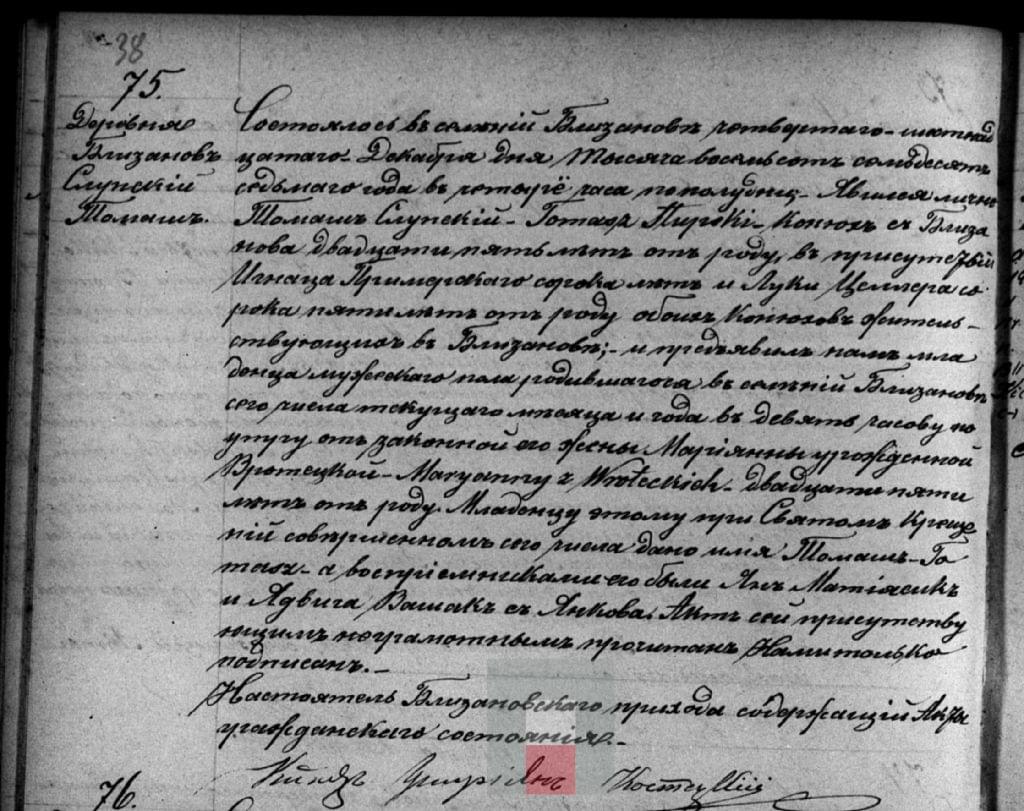 38
75.
Деревня
Близановъ
Слупскій
Томашъ.
Состоялось въ селеній Близановѣ четвертаго-шестнад
цатаго Декабря дня тысяча восемьсотъ семьдесятъ
седьмаго года въ четырё часа пополудни;- Явился лично
Томашъ Слупскій - Конюхъ съ Близа
нова двадцати пять лѣтъ отъ роду, въ присутствій
Игнаца Примерскаго сорока лѣтъ и Луки Целлера со
рока пяти лѣтъ отъ роду обоихъ Конюховъ житель-
ствующихъ въ Близановѣ;- и предъявилъ намъ мла
денца мужескаго пола родившагося въ селѣній Близановѣ
сего числа текущаго мѣсяца и года въ девять часовъ по
утру отъ законной его жены Маріянны урожденной
Вротецкой - Maryanny z Wrołeckich - двадцати пяти
лѣтъ отъ роду. Младенцу этому при Святомъ Креще
ній совершенномъ сего числа дано имя Томашъ - To
masz - а воспріемниками его были Янъ Матіясикъ
и Ядвига Вашакъ съ Янкова. Актъ сей присутству
ющимъ неграмотнымъ прочитанъ Нами только
подписанъ.-
Настоятель Близановскаго прихода содержащій Акты
гражданскаго состоянія.-
76.